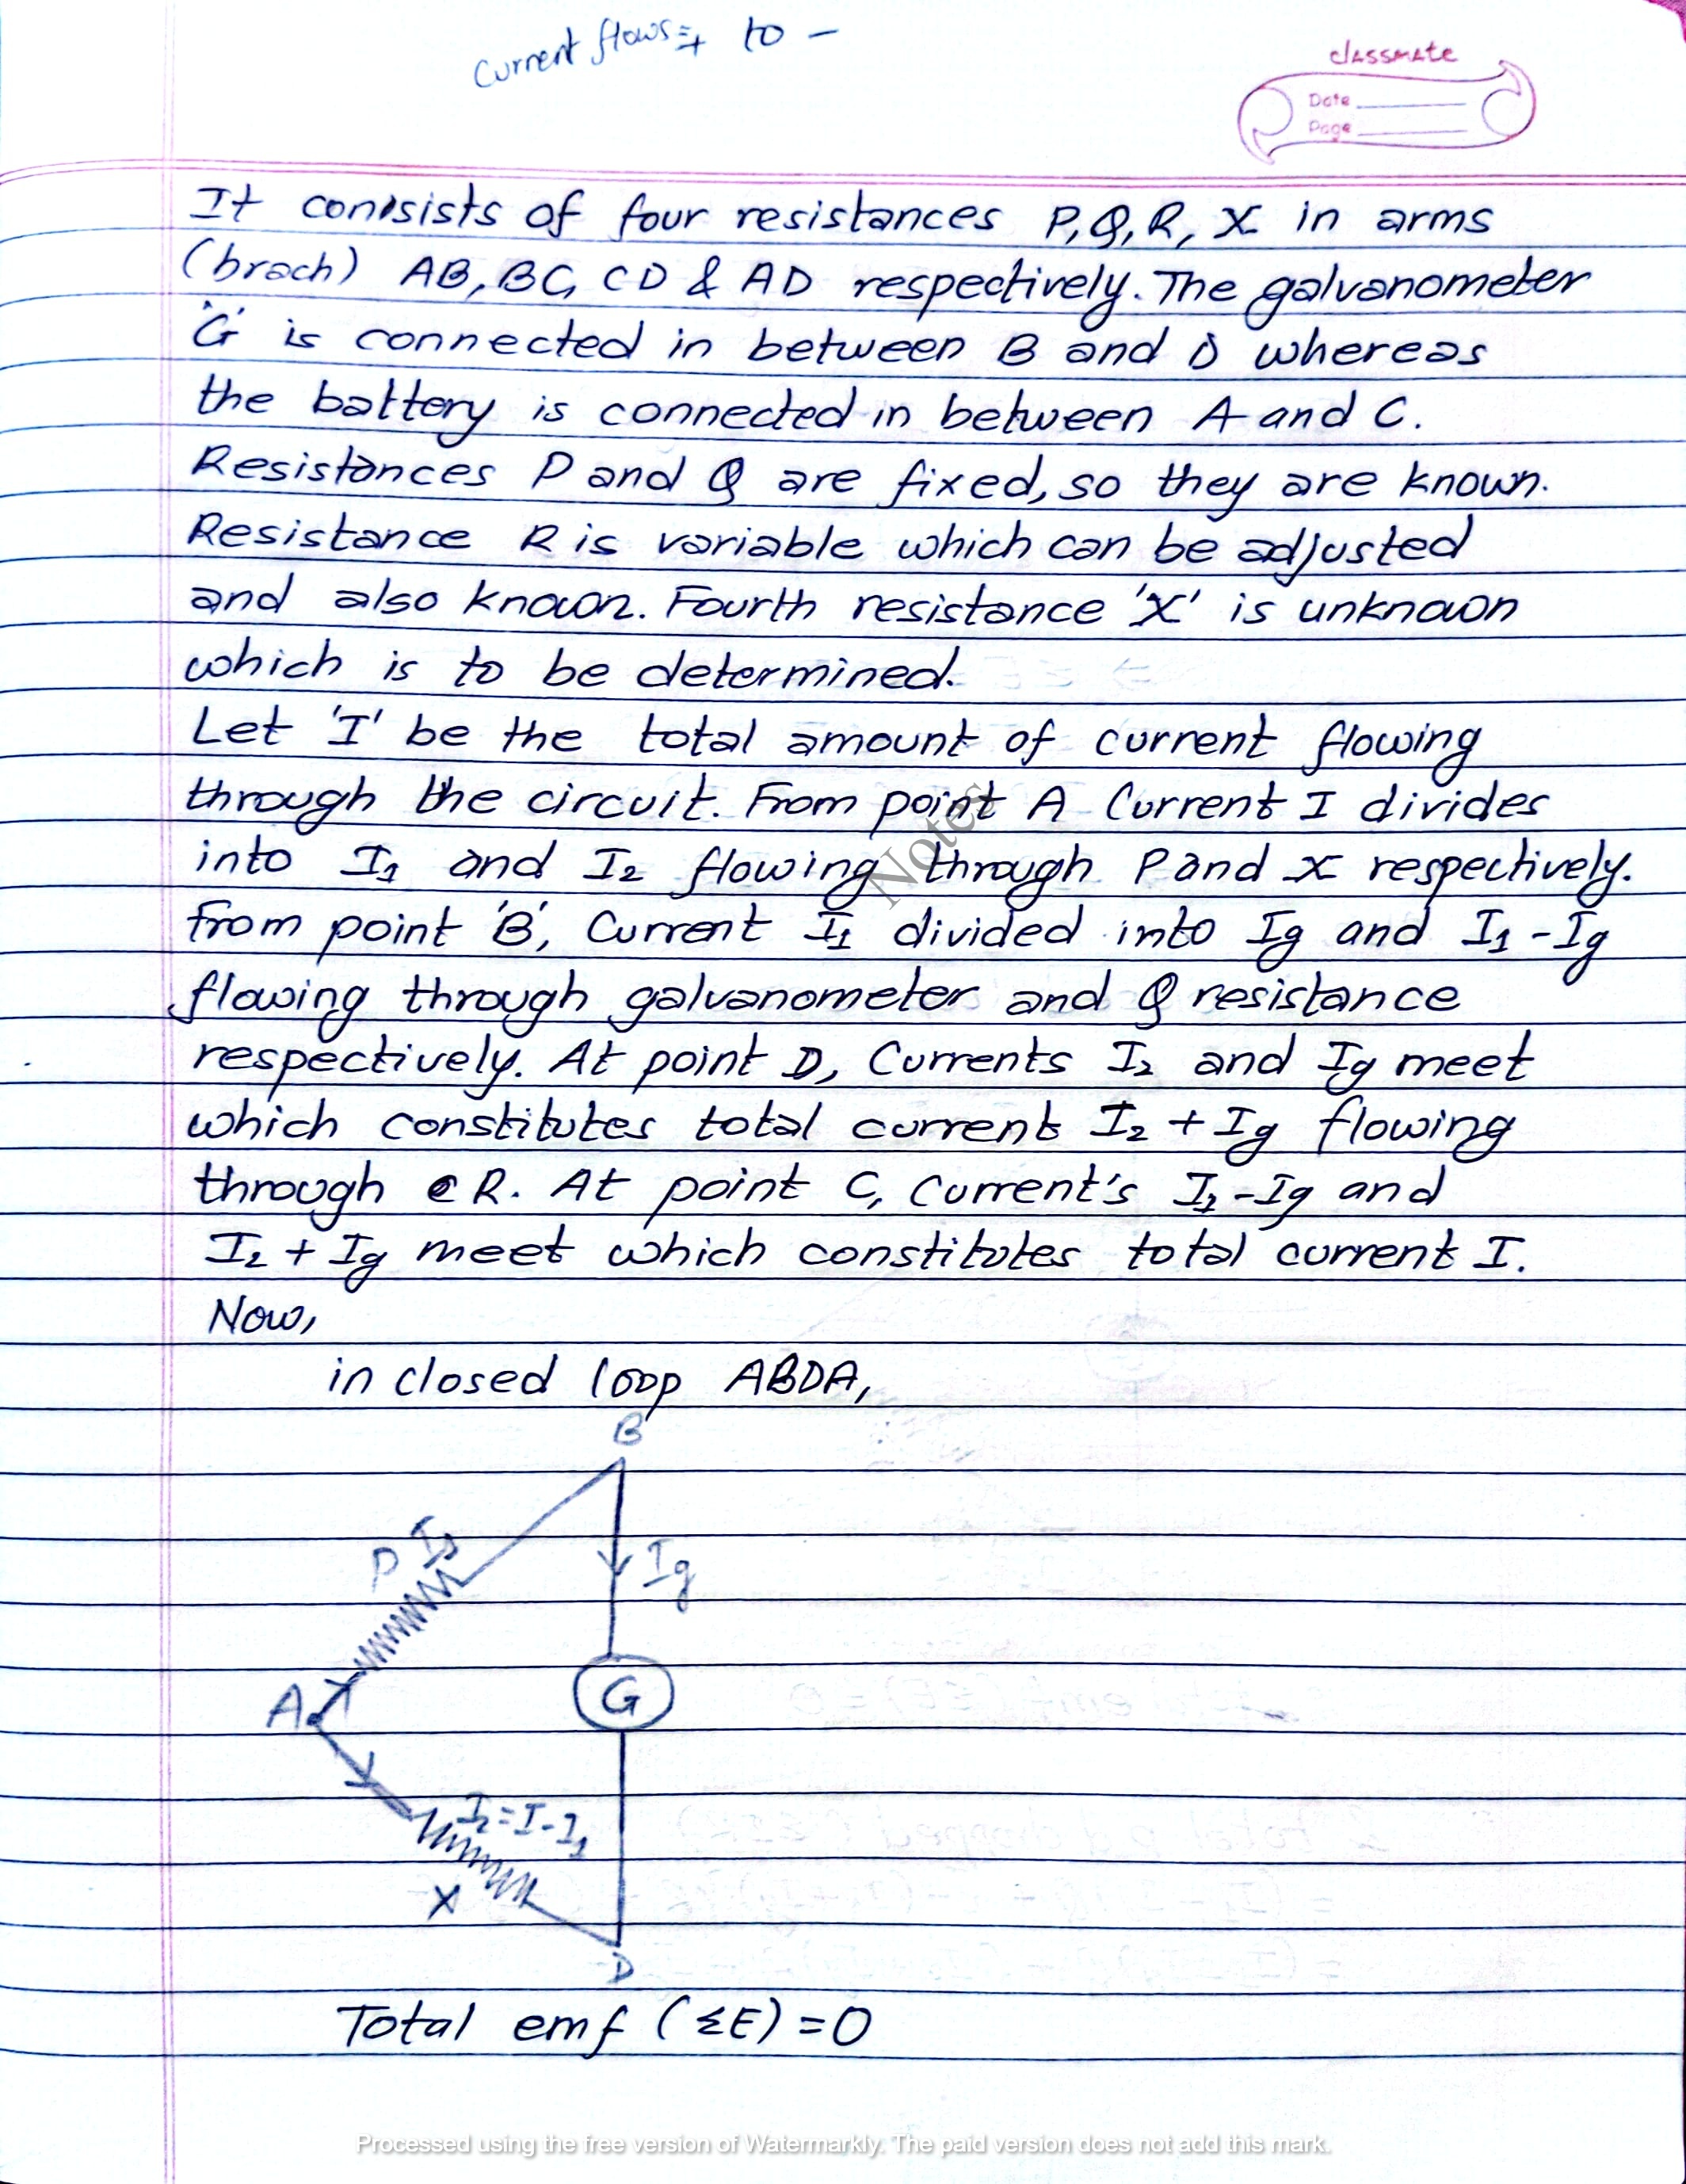 Current flows ⇒ + to -
classmate
Date
Page
It conisists of four resistances P, Q, R, X in arms
(brach) AB, BC, CD & AD respectively. The galvanometer
'G' is connected in between B and D whereas
the battery is connected in between A and C.
Resistances P and Q are fixed, so they are known.
Resistance R is variable which can be adjusted
and also known. Fourth resistance 'X' is unknown
which is to be determined.
Let 'I' be the total amount of current flowing
through the circuit. From point A Current I divides
into I₁ and I₂ flowing through P and X respectively.
Notes
From point 'B', Current I₁ divided into Ig and I₁ - Ig
flowing through galvanometer and Q resistance
respectively. At point D, Currents I₂ and Ig meet
which constitutes total current I₂ + Ig flowing
through R. At point C, Current's I₁ - Ig and
I₂ + Ig meet which constitutes total current I.
Now,
in closed loop ABDA,
B
P I₁
Ig
A
G
I₂ = I - I₁
X
D
Total emf (ΣE) = 0
Processed using the free version of Watermarkly. The paid version does not add this mark.